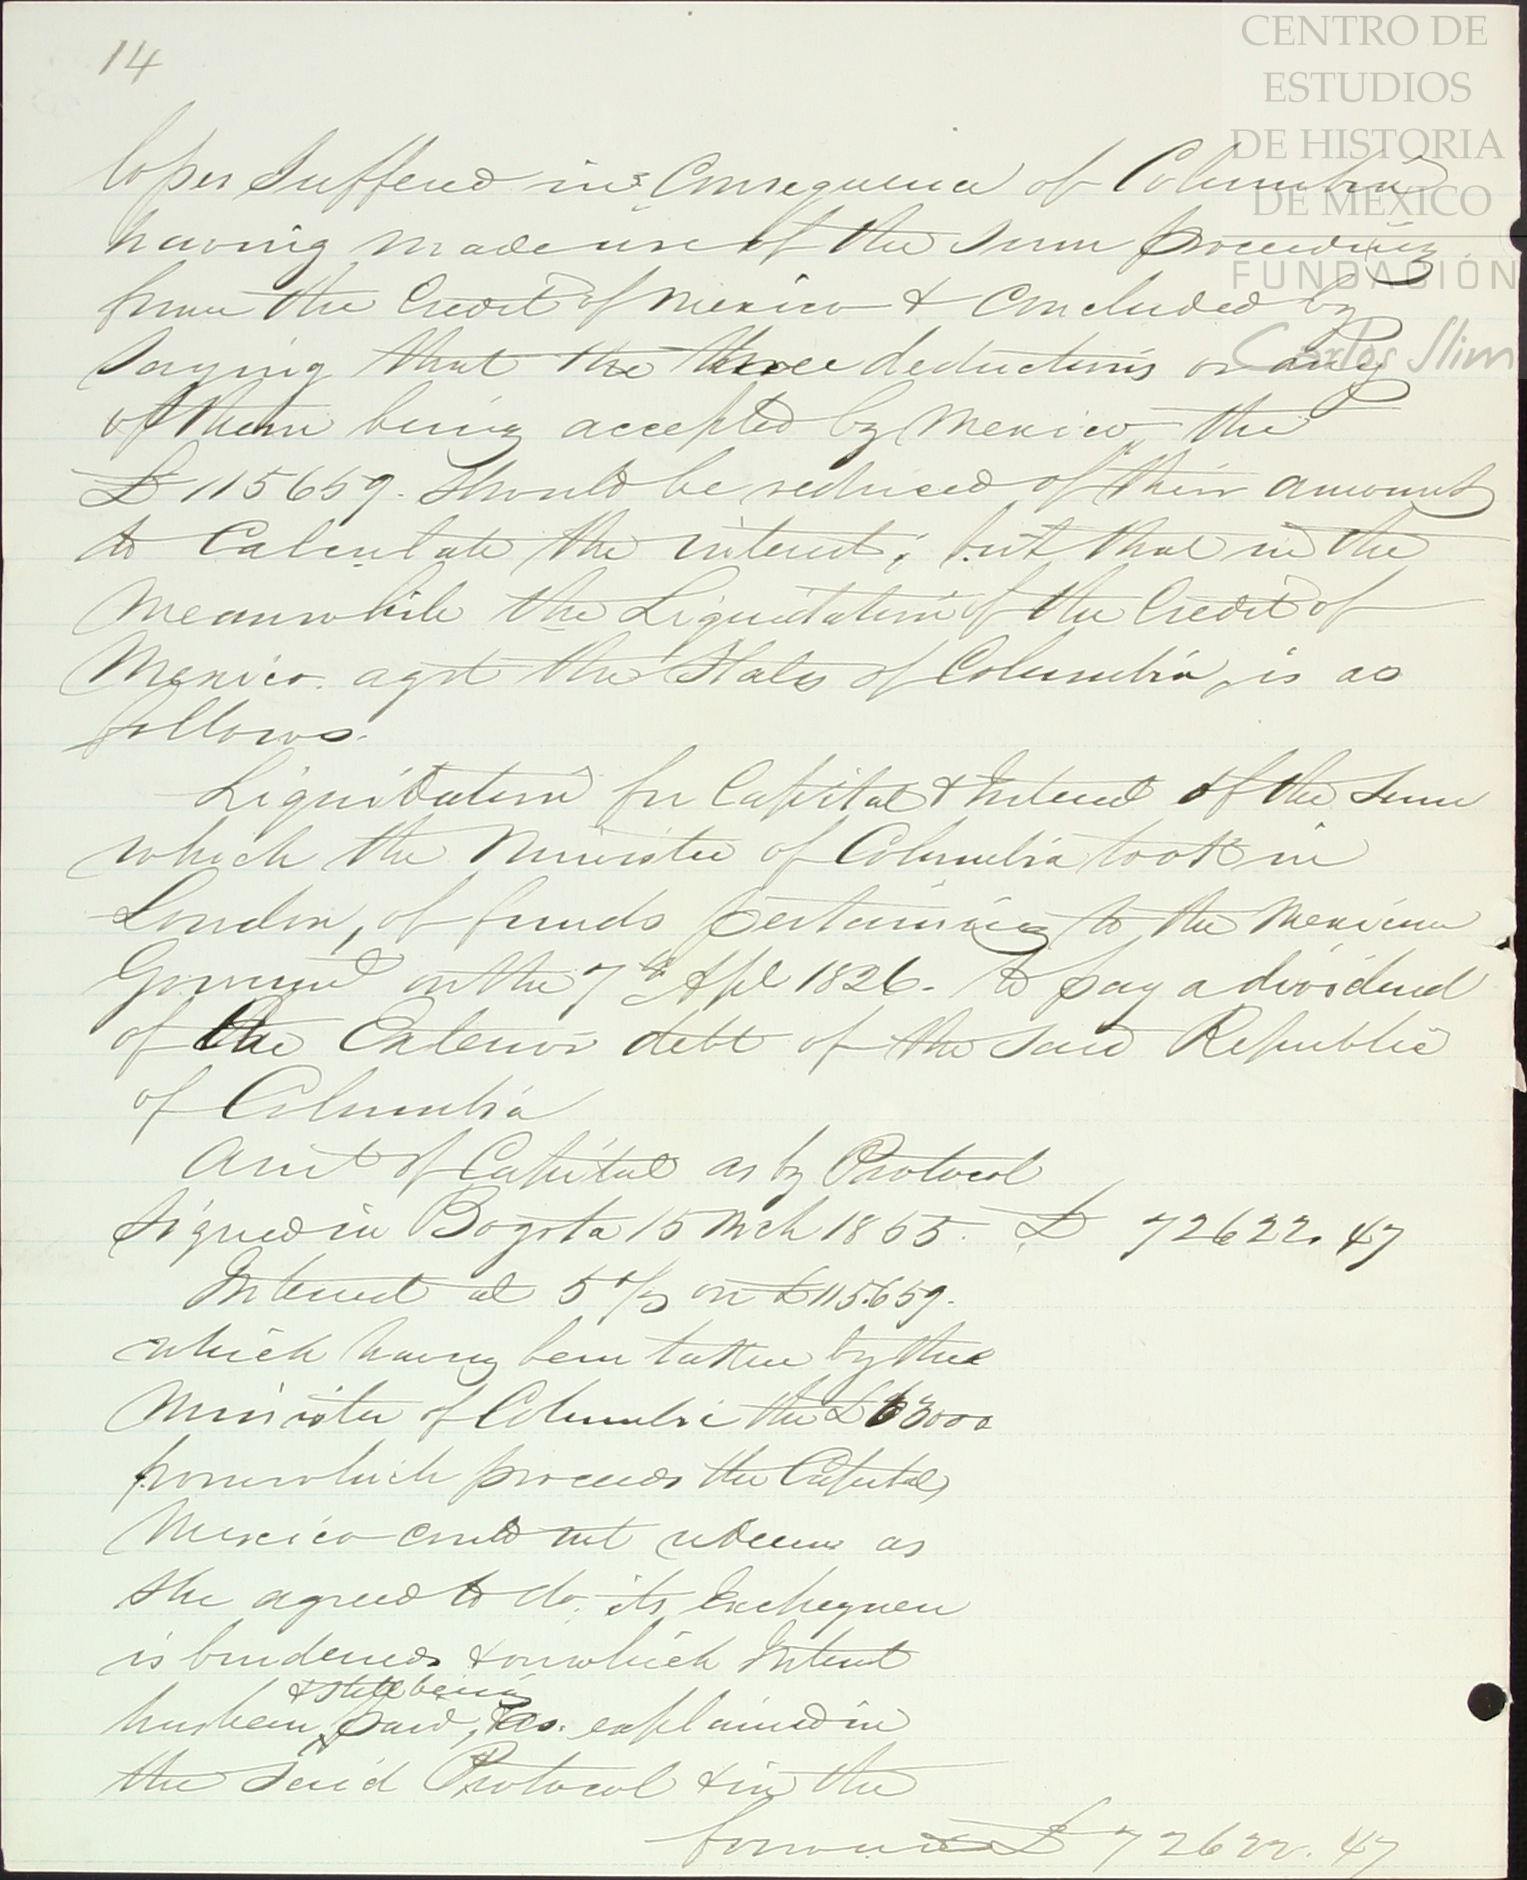 14
CENTRO DE
ESTUDIOS
DE HISTORIA
DE MÉXICO
FUNDACIÓN
Carlos Slim
losses suffered in consequence of Columbia
having made use of the sum proceeding
from the Credit of Mexico & concluded by
saying that the three deductions or any
of them being accepted by Mexico, the
£115659. should be reduced of their amount
to Calculate the interest; but that in the
meanwhile the Liquidation of the Credit of
Mexico. agst the States of Columbia, is as
follows.
Liquidation for Capital & Interest of the sum
which the Minister of Columbia took in
London, of funds pertaining to the Mexican
Governmt on the 7th Apl 1826. to pay a dividend
of the Exterior debt of the said Republic
of Columbia
Amt of Capital as by Protocol
signed in Bogota 15 Mch 1855. £ 72622.47
Interest at 5 % on £115.659.
which having been taken by the
Minister of Columbia the £63000
from which proceeds the Capital,
Mexico could not redeem as
she agreed to do, its Exchequer
is burdened & on which Interest
& still being
has been paid, as. explained in
the said Protocol & in the
forward £ 72622.47